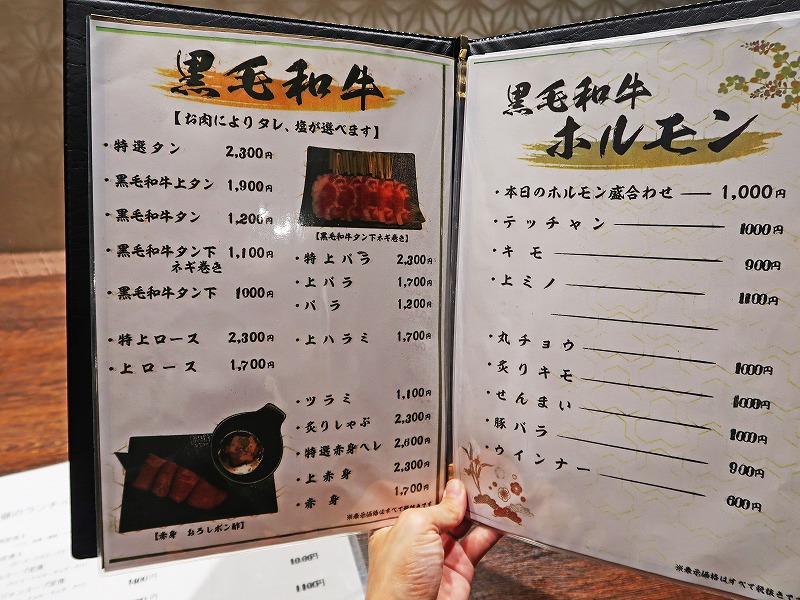 黒毛和牛
【お肉によりタレ、塩が選べます】
・特選タン 2,300円
・黒毛和牛上タン 1,900円
・黒毛和牛タン 1,200円
・黒毛和牛タン下ネギ巻き 1,100円
・黒毛和牛タン下 1000円
・特上ロース 2,300円
・上ロース 1,700円
【赤身 おろしポン酢】
【黒毛和牛タン下ネギ巻き】
・特上バラ 2,300円
・上バラ 1,700円
・バラ 1,200円
・上ハラミ 1,700円
・ツラミ 1,100円
・炙りしゃぶ 2,300円
・特選赤身ヘレ 2,600円
・上赤身 2,300円
・赤身 1,700円
※表示価格はすべて税抜きです
黒毛和牛
ホルモン
・本日のホルモン盛合わせ 1,000円
・テッチャン 1000円
・キモ 900円
・上ミノ 1100円
・丸チョウ 1000円
・炙りキモ 1000円
・せんまい 1000円
・豚バラ 900円
・ウインナー 600円
※表示価格はすべて税抜きです